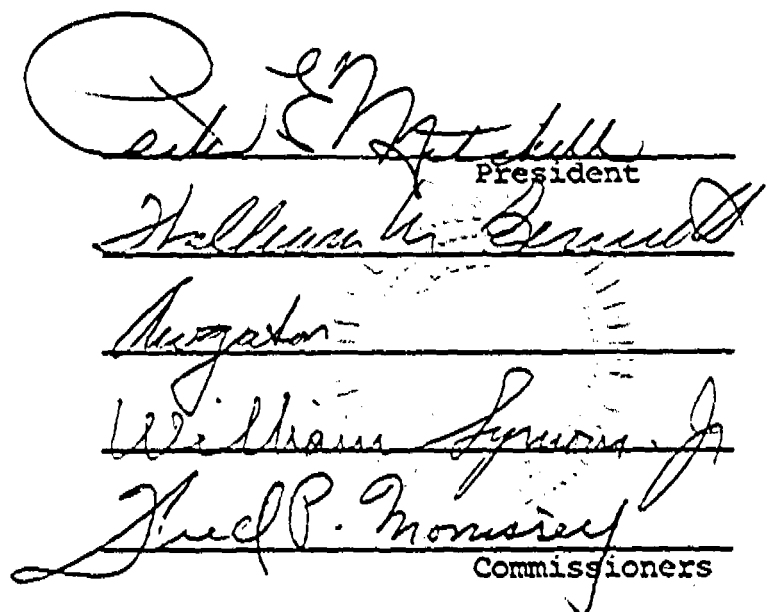 Peter E Mitchell
President
William M. Bennett
William Symons. Jr
Fred P. Morrissey
Commissioners